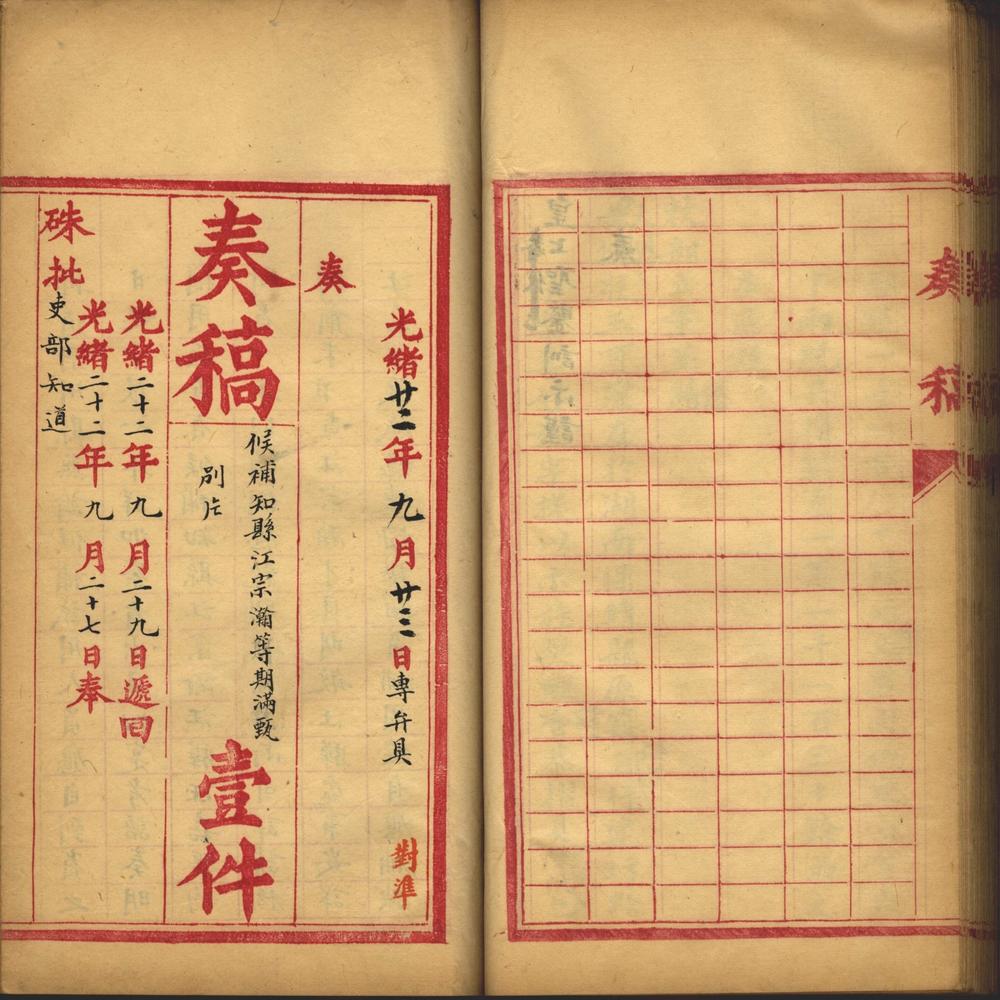 奏稿
光緒廿二年九月廿三日專弁具
對準
奏
奏稿
候補知縣江宗瀚等期滿甄
別片
壹件
光緒二十二年九月二十九日遞回
光緒二十二年九月二十七日奉
硃批吏部知道